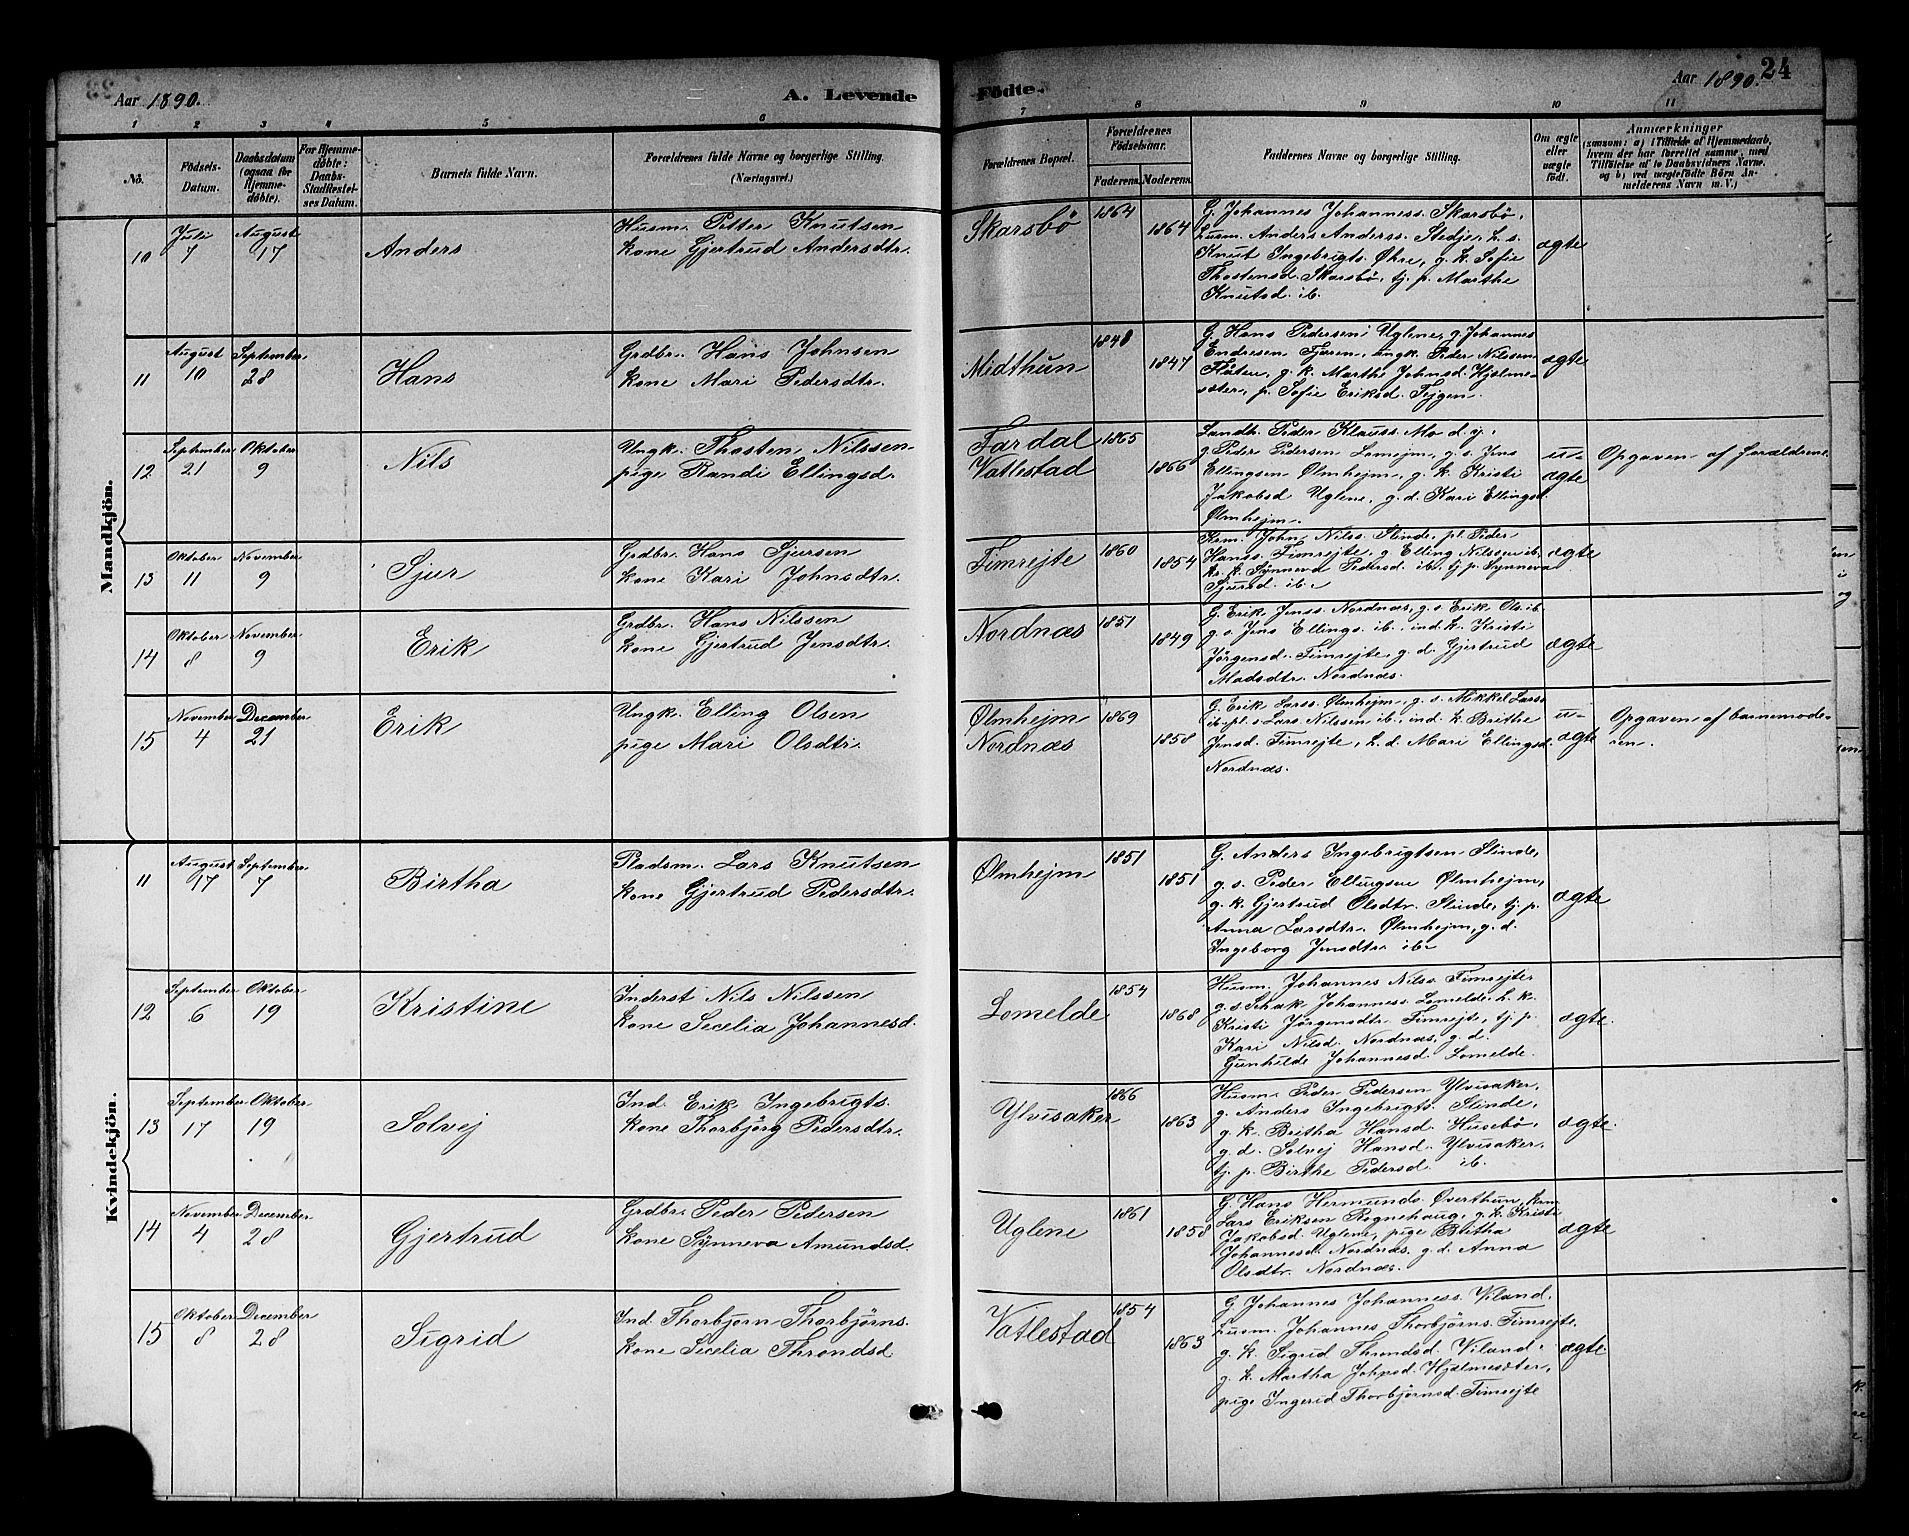 Aar 1890.
A. Levende Födte.
Aar 1890.
24
1 2 3 4 5 6 7 8 9 10 11
No.
Födsels-Datum.
Daabsdatum (ogsaa for Hjemmedöbte).
For Hjemmedöbte: Daabs-Stadfæstelses Datum.
Barnets fulde Navn.
Forældrenes fulde Navne og borgerlige Stilling.
(Næringsvei.)
Forældrenes Bopæl.
Forældrenes Födselsaar.
Faderens. Moderens.
Faddernes Navne og borgerlige Stilling.
Om ægte eller uægte födt.
Anmærkninger
(saasom: a) i Tilfælde af Hjemmedaab, hvem der har forrettet samme, med Tilföielse af to Daabsvidners Navne, og b) ved uægtefödte Börn Anmelderens Navn m. V.)
Mandkjön.
10
Juli 7
August 17
Anders
Husm. Petter Knutsen
kone Gjertrud Andersdtr.
Skarsbö
1864
1864
G. Johannes Johanness. Skarsbö,
husm. Anders Anderss. Stedje, h. s.
Knut Ingebrigts. Øhre, g. k. Sofie
Thostensd. Skarsbö, tj. p. Marthe
Knutsd. ib.
ægte
11
August 10
September 28
Hans
Grdbr. Hans Johnsen
kone Mari Pedersdtr.
Midthun
1848
1847
G. Hans Pedersen Uglene, g. Johannes
Endresen Fjæren, ungk. Peder Nilsen
Flåten, g. k. Martha Johnsd. Hjelme-
sæter, p. Sofie Eriksd. Fejgen.
ægte
12
September 21
Oktober 9
Nils
Ungk. Thosten Nilssen
pige Randi Ellingsd.
Fardal
Vatlestad
1865
1866
Landh. Peder Klauss. Mo d. y.
g. Peder Pedersen Lomejm, g. s. Jens
Ellingsen Ølmhejm, g. k. Kristi
Jakobsd Uglene, g. d. Kari Ellingsd.
Ølmhejm.
u-
ægte
Opgaven af forældrene.
13
Oktober 11
November 9
Sjur
Grdbr. Hans Sjursen
kone Kari Johnsdtr.
Fimrejte
1860
1854
Krm. John Nilss. Slinde, pl. Peder
Hanss. Fimrejte, g. Elling Nilssen ib,
kr. k. Synneva Pedersd. ib. tj. p. Synneva
Sjursd. ib.
ægte
14
Oktober 8
November 9
Erik
Grdbr. Hans Nilssen
kone Gjertrud Jensdtr.
Nordnæs
1851
1849
G. Erik Jenss. Nordnæs, g. s. Erik Ols. ib.
g. s. Jens Ellings. ib. ind. k. Kristi
Jörgensd. Fimrejte, g. d. Gjertrud
Madsdtr. Nordnæs.
ægte
15
November 4
December 21
Erik
Ungk. Elling Olsen
pige Mari Olsdtr.
Ølmhejm
Nordnæs
1869
1858
G. Erik Larss. Ølmhejm, g. s. Mikkel Larss.
ib. pl. s. Lars Nilssen ib. ind. k. Brithe
Jensd. Fimrejte, h. d. Mari Ellingsd.
Nordnæs.
u-
ægte
Opgaven af barnemode-
ren.
Kvindekjön.
11
August 17
September 7
Birtha
Pladsm. Lars Knutsen
kone Gjertrud Pedersdtr.
Ølmhejm
1851
1851
G. Anders Ingebrigtsen Slinde,
g. s. Peder Ellingsen Ølmhejm,
g. k. Gjertrud Olsdtr. Slinde, tj. p.
Anna Larsdtr. Ølmhejm, g. d.
Ingeborg Jensdtr. ib.
ægte
12
September 6
Oktober 19
Kristine
Inderst Nils Nilssen
kone Secelia Johannesd.
Lomelde
1854
1868
Husm. Johannes Nilss. Fimrejte
g. s. Schak Johanness. Lomelde, h. k.
Kristi Jörgensdtr. Fimrejte, tj. p.
Kari Nilsd. Nordnæs, g. d.
Gunhilde Johannesd. Lomelde.
ægte.
13
September 17
Oktober 19
Solvej
Ind. Erik Ingebrigts.
kone Thorbjörg Pedersdtr.
Ylvisaker
1866
1863
Husm. Peder Pedersen Ylvisaker,
g. Anders Ingebrigts. Slinde,
g. k. Britha Hansd. Husebö,
g. d. Solvej Hansd. Ylvisaker,
tj. p. Birthe Pedersd. ib.
ægte.
14
November 4
December 28
Gjertrud
Grdbr. Peder Pedersen
kone Synneva Amundsd.
Uglene
1861
1858
G. Hans Hermunds. Øverthun, krm.
Lars Eriksen Rognehaug, g. k. Kristi
Jakobsd. Uglene, pige Britha
Johannesd. Nordnæs, g. d. Anna
Olsdtr. Nordnæs.
ægte
15
Oktober 8
December 28
Sigrid
Ind. Thorbjörn Thorbjörns.
kone Secelia Throndsd.
Vatlestad
1854
1863
G. Johannes Johanness. Viland.
husm. Johannes Thorbjörns. Fimrejte,
g. k. Sigrid Throndsd. Viland,
g. k. Martha Johnsd. Hjælmesæter,
pige Ingerid Thorbjörnsd. Fimrejte
ægte